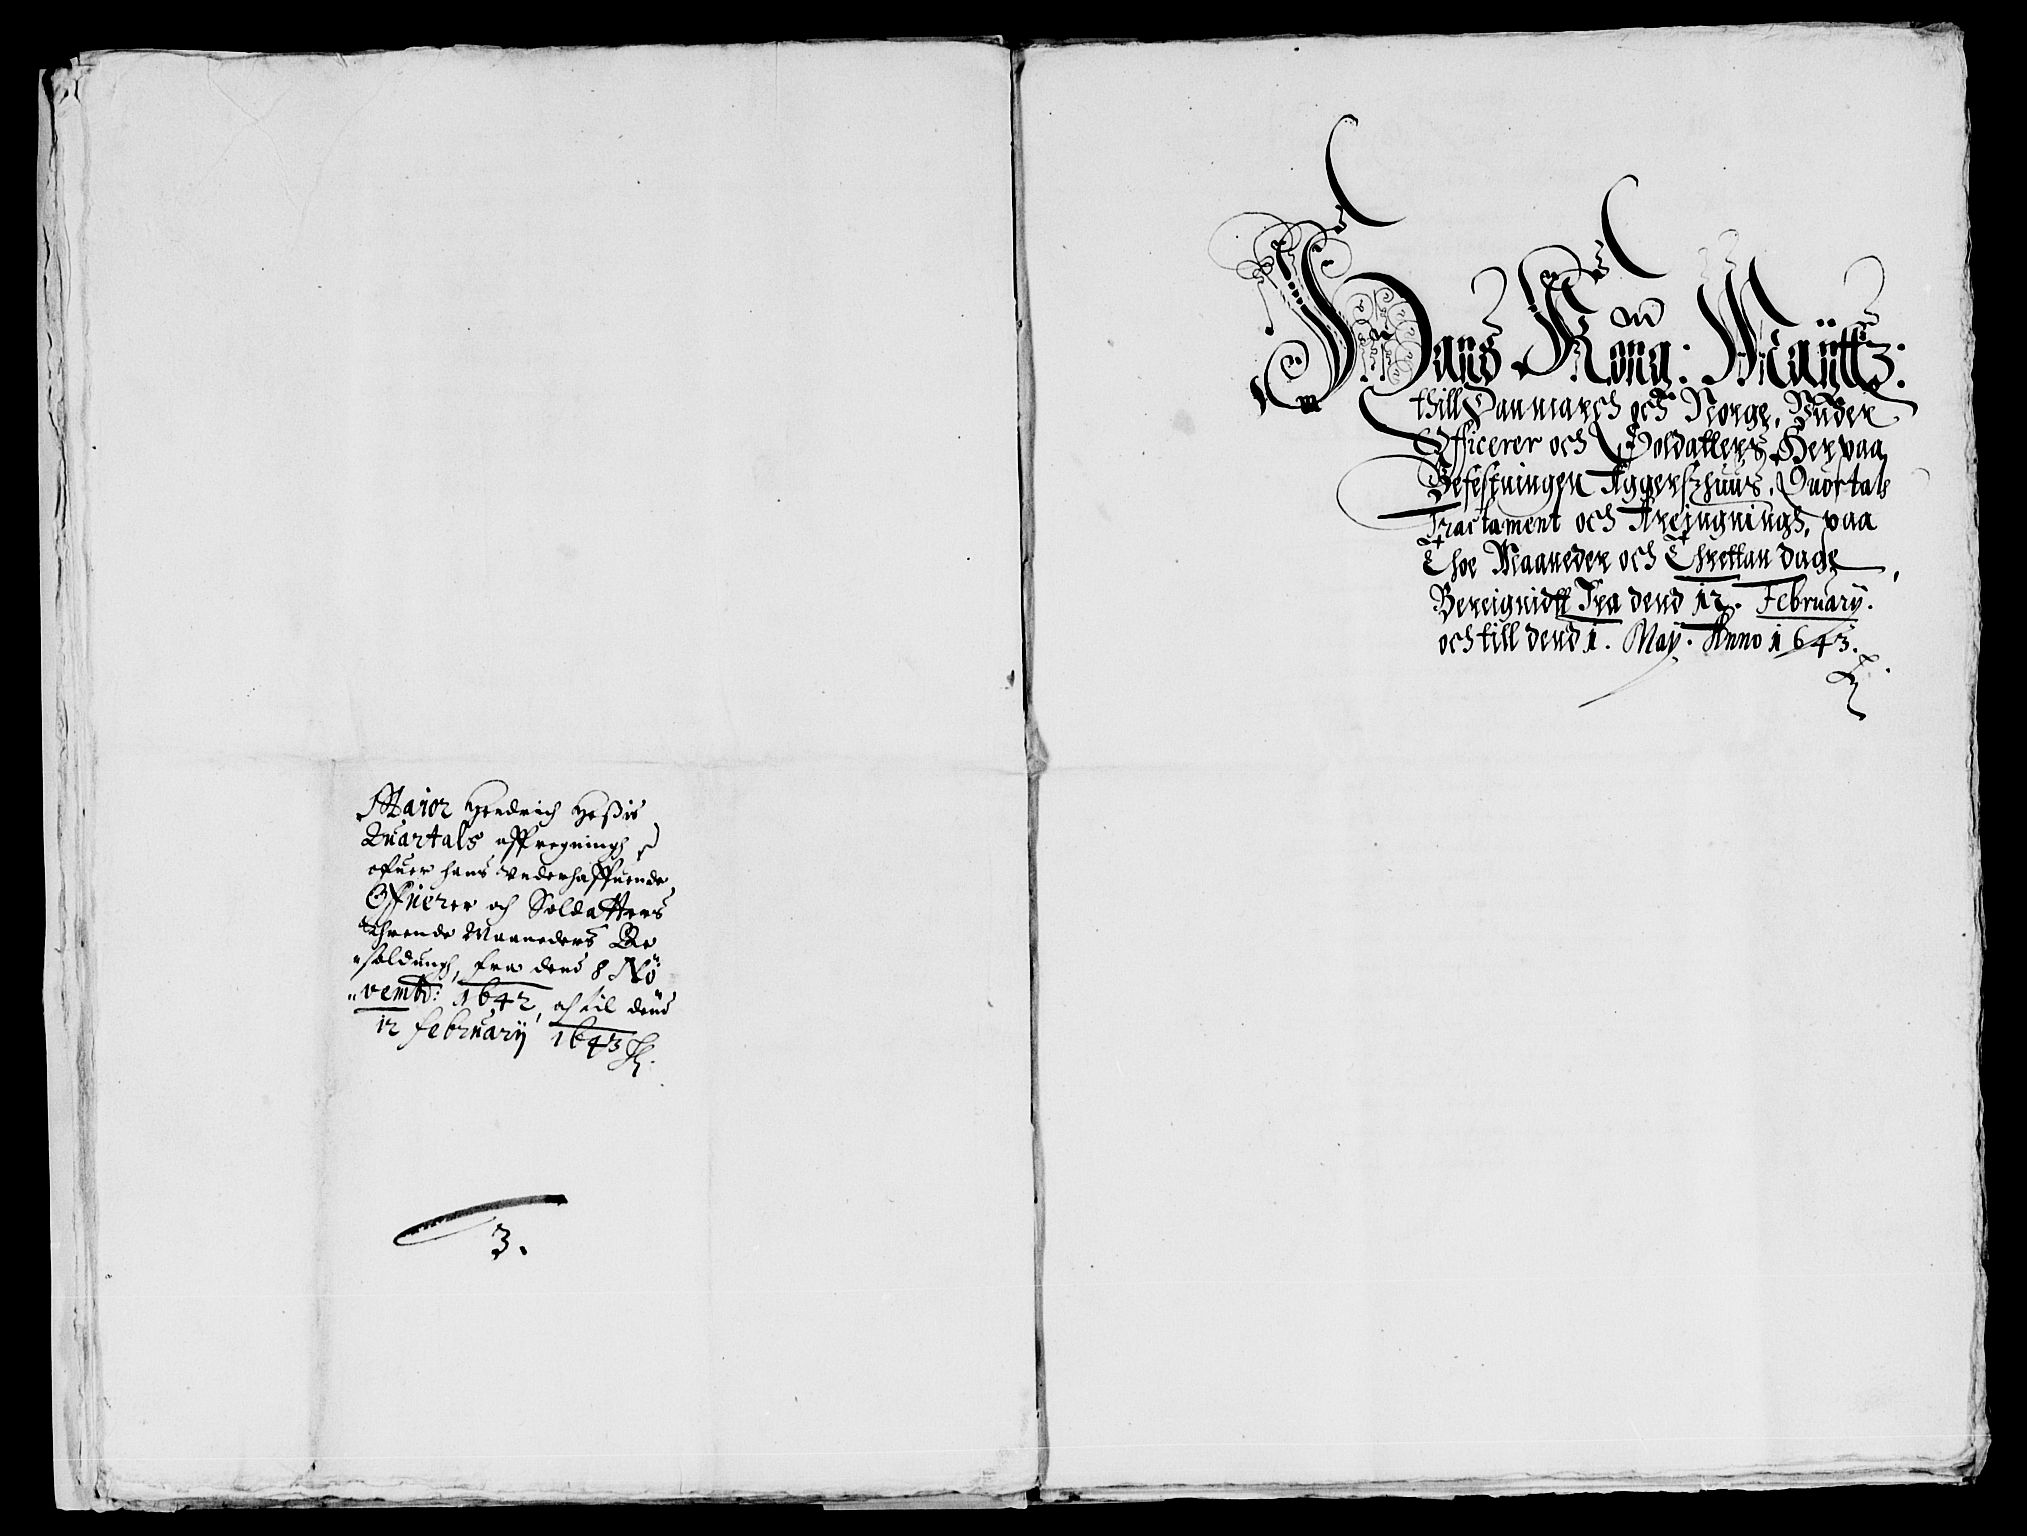 Maior Hendrich Heßis
Quartals affregningh
ofuer hans underhaffuende
Officerer och Soldatters
thrende Maaneders Be
soldungh, fra dend 8 No
vemb: 1642, och til dend
12 februarij 1643
3.
Hans Kong: Mayttz:
thill Danmarch och Norge, Under
Officerer och Soldatters Her paa
Befestningen Aggerszhuus, Quortals
Tractament och Affreigningh, paa
Thoe Maaneder och Threttan dage
Bereignidtt Fra dend 12. February.
och till dend 1. May. Anno 1643.